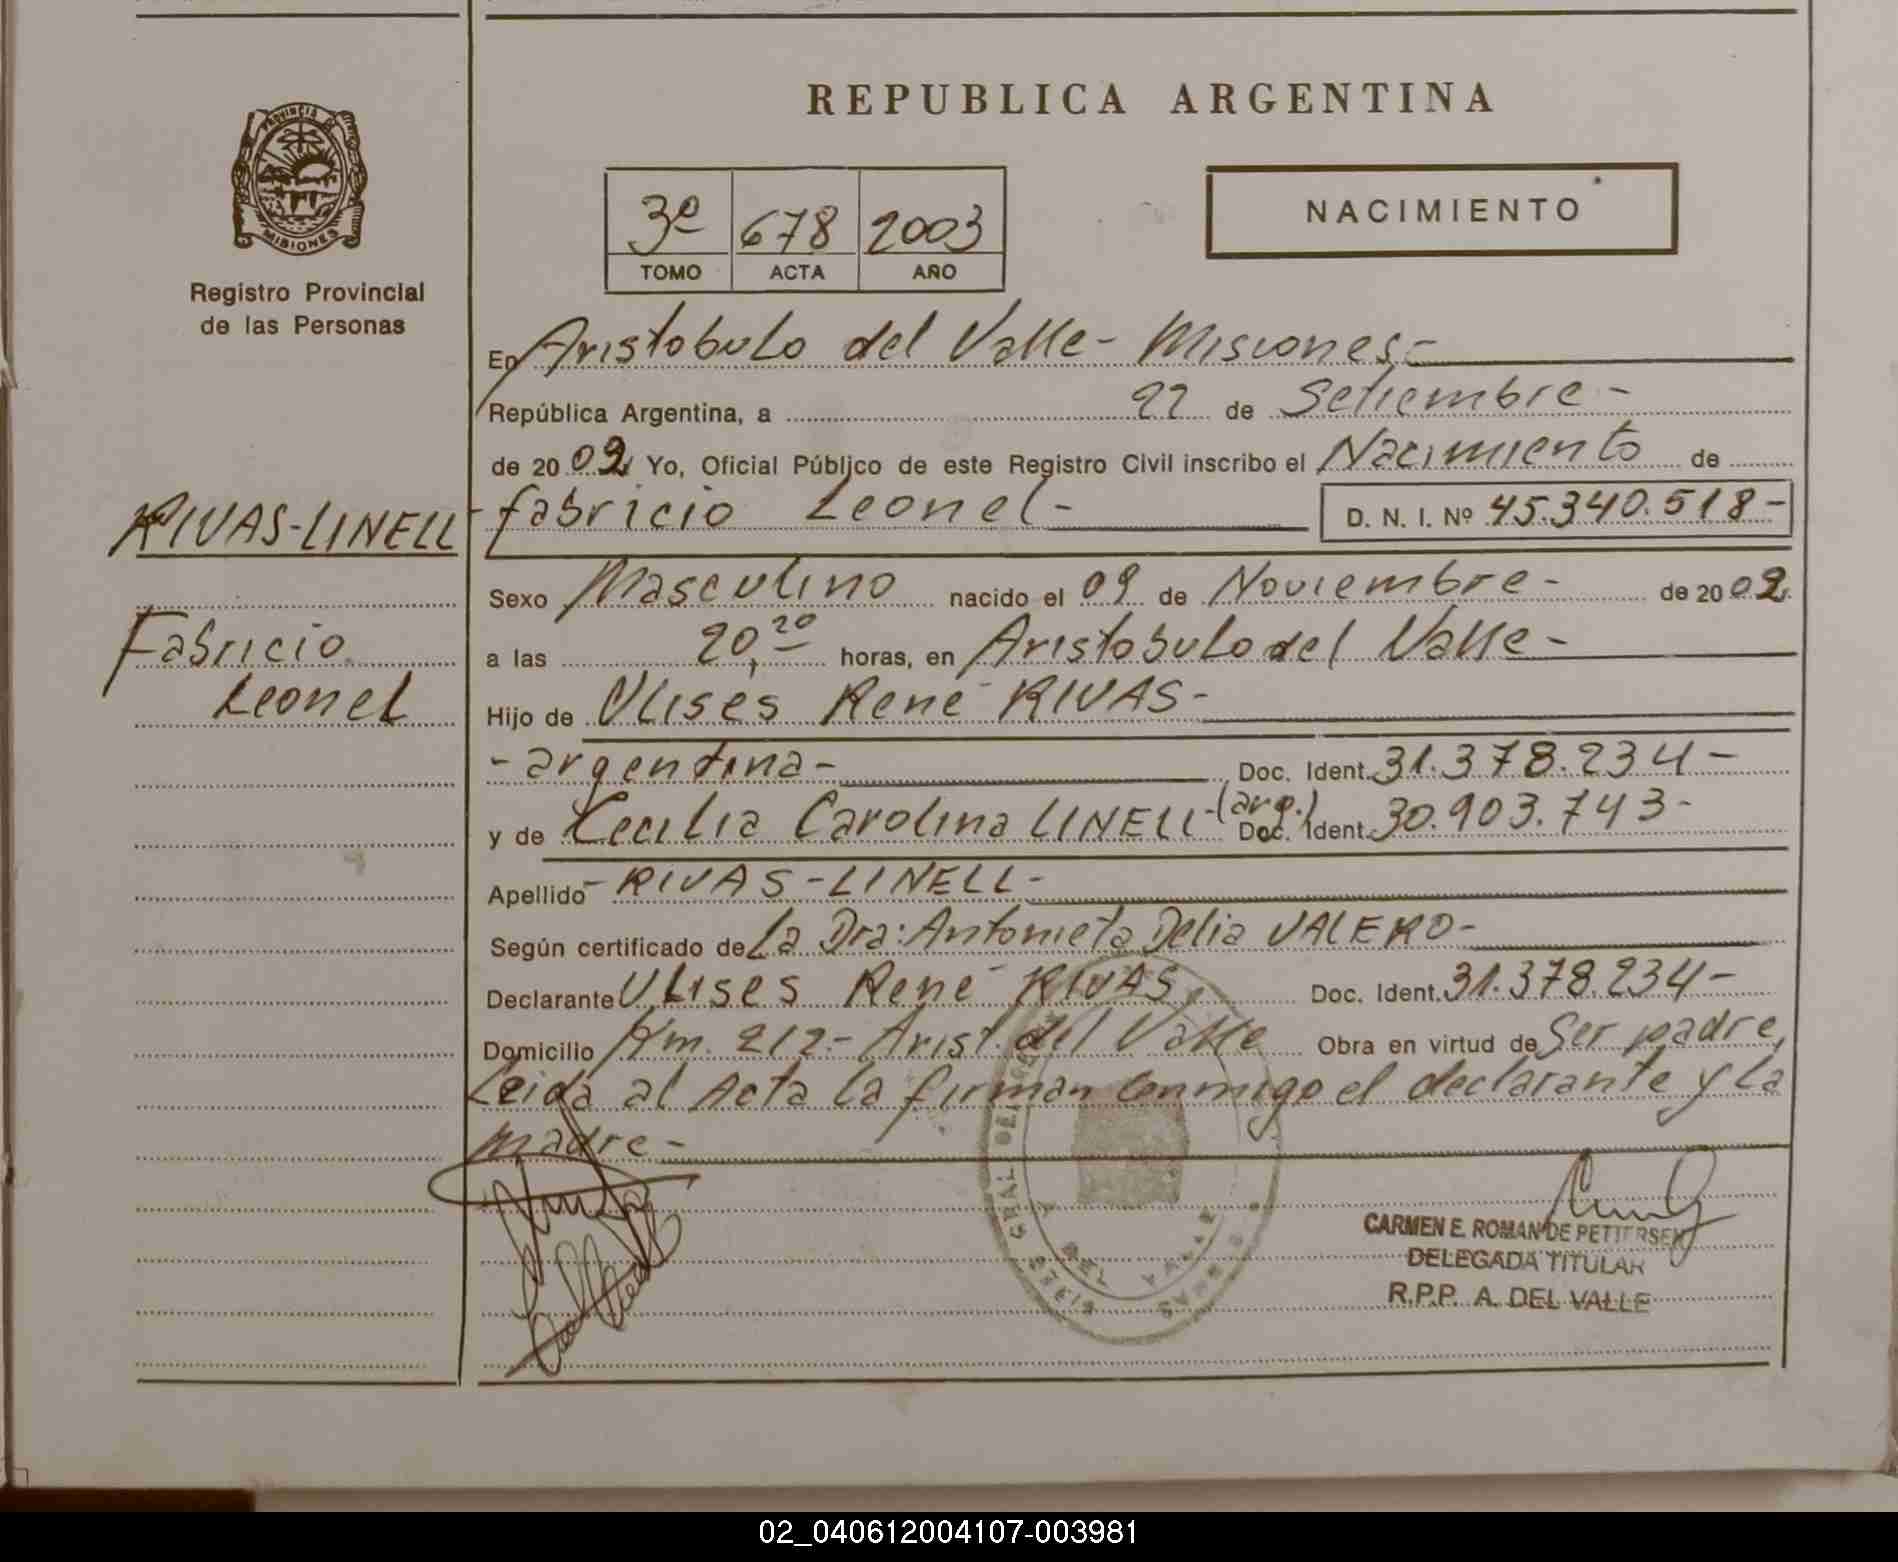 REPUBLICA ARGENTINA
PROVINCIA DE
MISIONES
Registro Provincial
de las Personas
3º 678 2003
TOMO ACTA AÑO
NACIMIENTO
En Aristobulo del Valle - Misiones -
República Argentina, a 22 de Setiembre -
de 2002 Yo, Oficial Público de este Registro Civil inscribo el Nacimiento de
RIVAS-LINELL - Fabricio Leonel - D. N. I. Nº 45.340.518 -
Sexo Masculino nacido el 09 de Noviembre - de 2002
Fabricio
Leonel
a las 20,20 horas, en Aristobulo del Valle -
Hijo de Ulises René RIVAS -
- argentina - Doc. Ident. 31.378.234 -
y de Cecilia Carolina LINELL - (arg.) Doc. Ident. 30.903.743 -
Apellido - RIVAS - LINELL -
Según certificado de La Dra: Antonieta Delia VALERO -
Declarante Ulises René RIVAS, Doc. Ident. 31.378.234 -
Domicilio Km. 212 - Arist. del Valle Obra en virtud de Ser padre,
Leida al Acta la firman conmigo el declarante y la
madre -
CARMEN E. ROMAN DE PETTERSEN
DELEGADA TITULAR
R.P.P. A. DEL VALLE
02_040612004107-003981